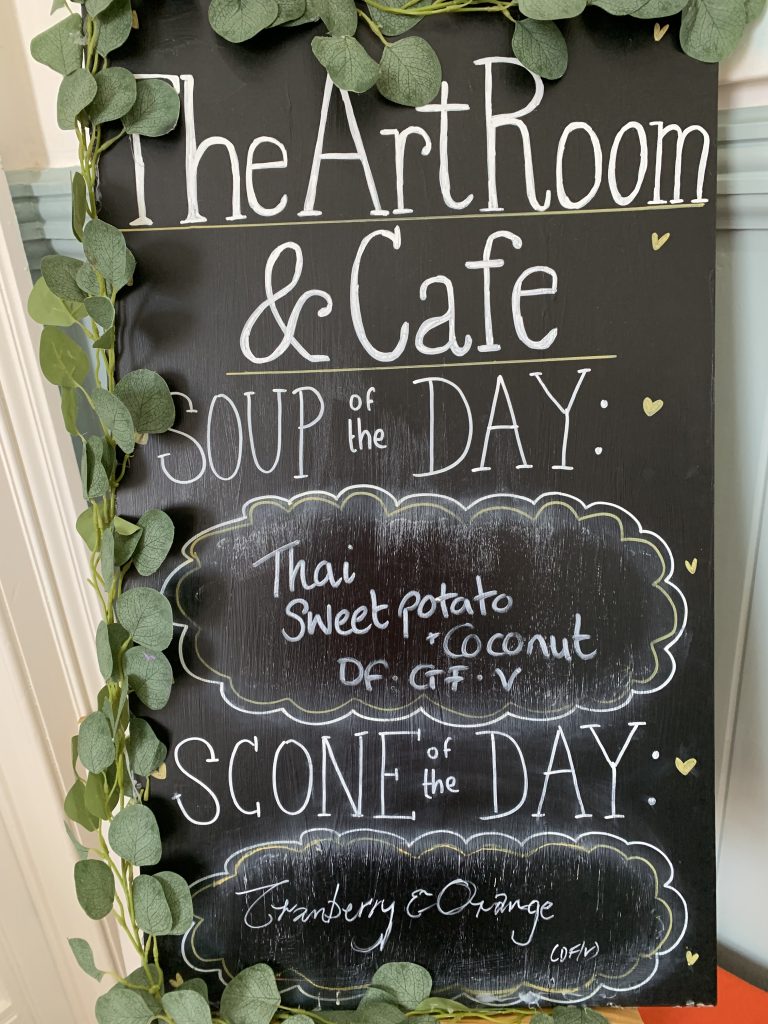 The Art Room
& Cafe
SOUP of the DAY:
Thai
Sweet potato
+ Coconut
DF. GF. V
SCONE of the DAY:
Cranberry & Orange
(DF/V)